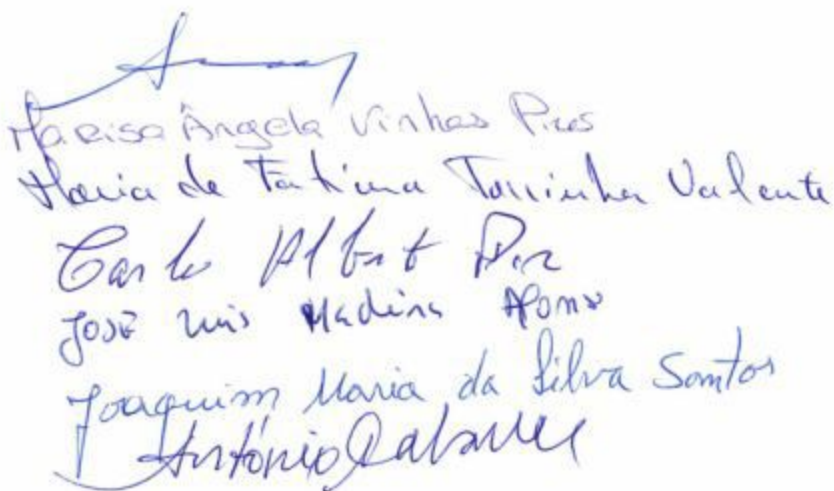 Marisa Ângela Vinhas Pires
Maria de Fatima Torrinha Valente
Carlos Albert Pir
José Luis Madeira Afonso
Joaquim Maria da Silva Santos
António